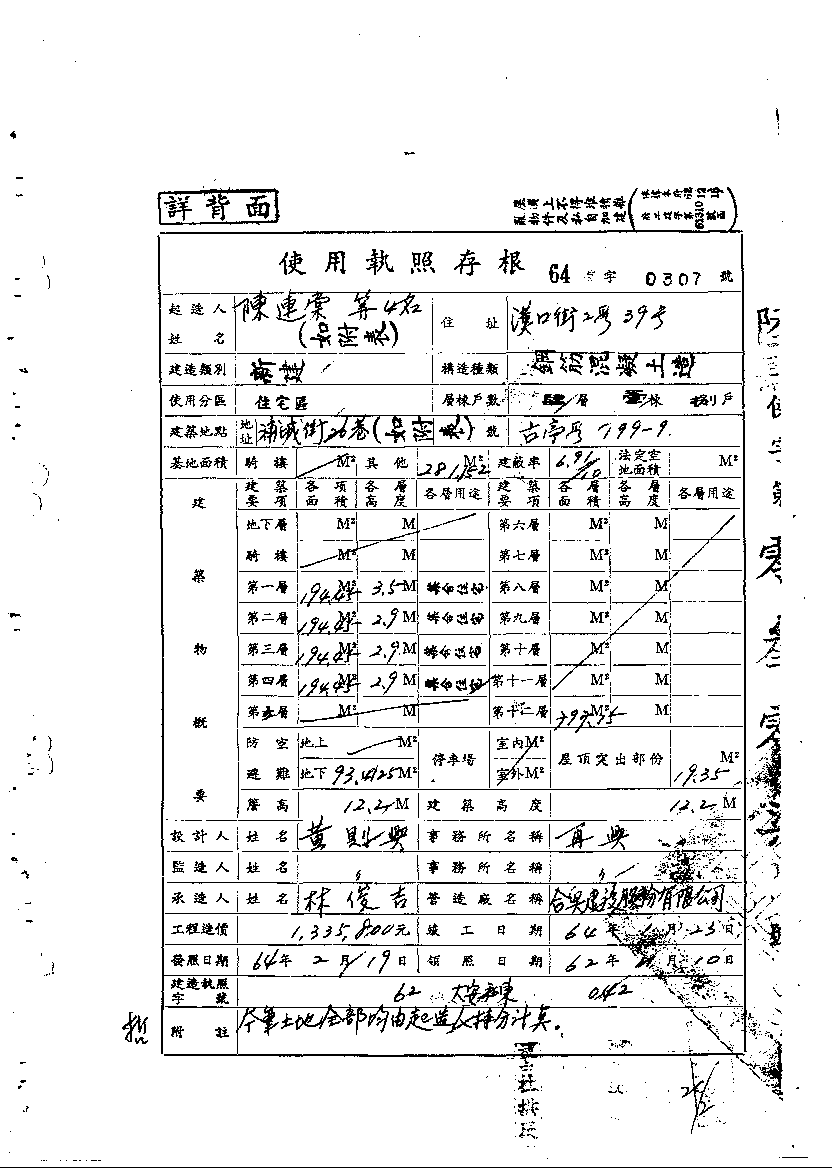 詳背面
屋頂上不得堆積雜
物件及私自加建
使用執照存根 64 字 0307 號
起造人姓名 陳連棠 等4名 (如附表) 住址 漢口街2段39号
建造類別 新建 構造種類 鋼筋混凝土造
使用分區 住宅區 層棟戶數 層 棟 戶
建築地點 地址 浦城街26巷(如附表)號 古亭段 799-9
基地面積 騎樓 M² 其他 281.52 M² 建蔽率 6.91/10 法定空地面積 M²
建築物概要
建築要項 各項面積 各層高度 各層用途 建築要項 各層面積 各層高度 各層用途
地下層 M² M 第六層 M² M
騎樓 M² M 第七層 M² M
第一層 194.45 M² 3.5 M 集合住宅 第八層 M² M
第二層 194.45 M² 2.9 M 集合住宅 第九層 M² M
第三層 194.45 M² 2.9 M 集合住宅 第十層 M² M
第四層 194.45 M² 2.9 M 集合住宅 第十一層 M² M
第五層 M² M 第十二層 M² M
防空避難 地上 M² 停車場 室內M² 屋頂突出部份 19.35 M²
地下 93.4125 M² 室外M²
簷高 12.2 M 建築高度 12.2 M
設計人 姓名 黃則興 事務所名稱 再興
監造人 姓名 〃 事務所名稱 〃
承造人 姓名 林俊吉 營造廠名稱 股份有限公司
工程造價 1,335,800元 竣工日期 64年 1月 25日
發照日期 64年 2月 19日 領照日期 62年 月 10日
建造執照字號 62 大安 0142
附註 本筆土地全部均由起造人持分計算。